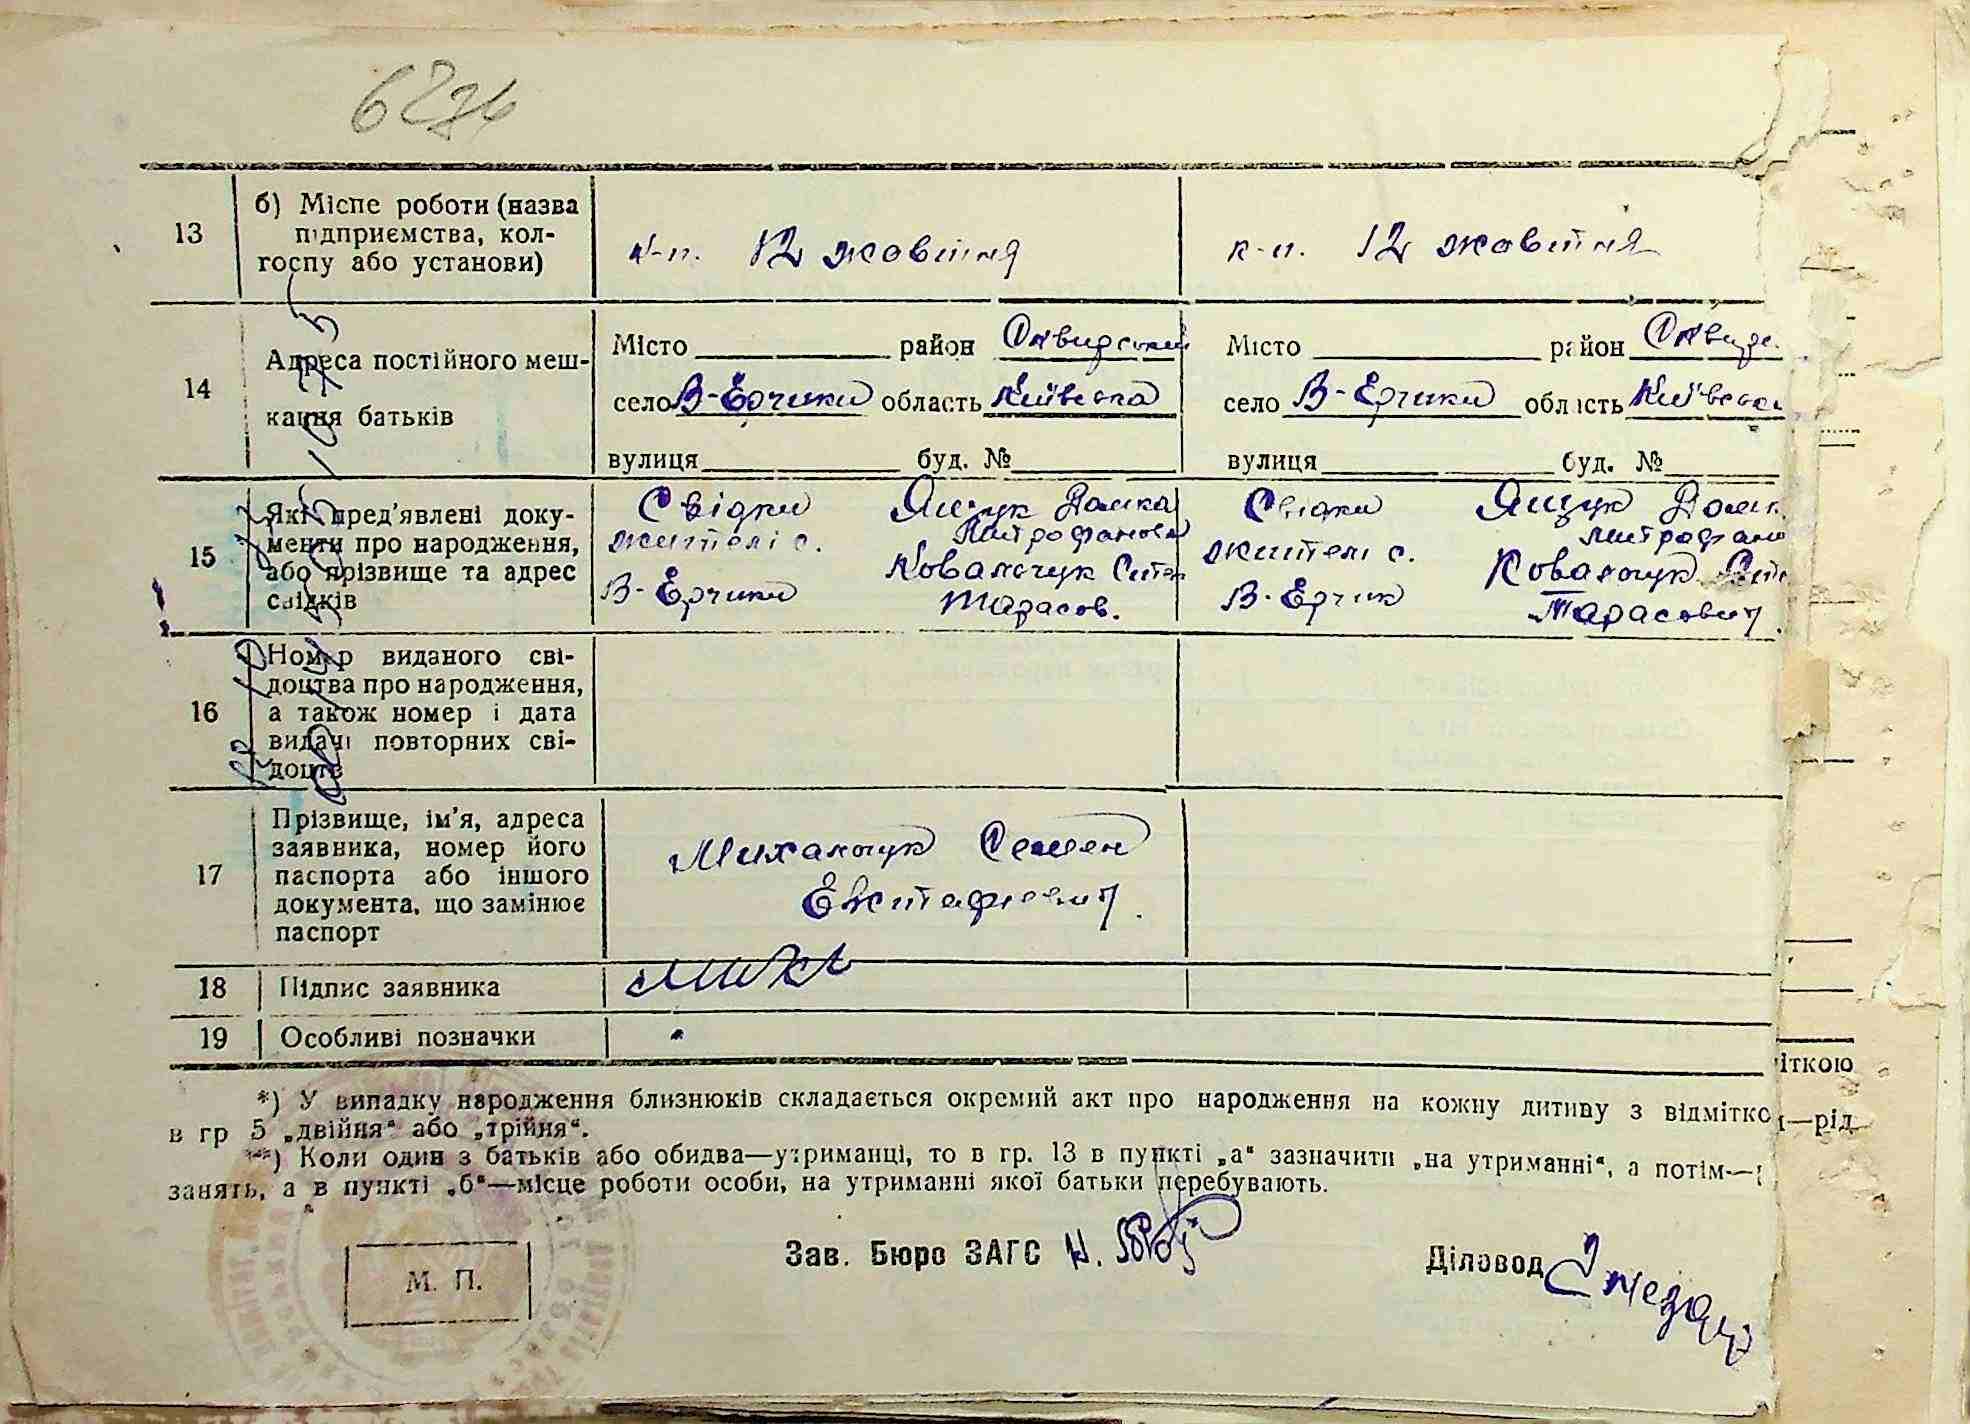 6274
13
б) Місце роботи (назва
підприємства, кол-
госпу або установи)
к-п. 12 жовтня
к-п. 12 жовтня
14
Адреса постійного меш-
кання батьків
Місто район Сквирський
село В-Єрчики область Київська
вулиця буд. №
Місто район Сквирс.
село В-Єрчики область Київська
вулиця буд. №
15
Які пред'явлені доку-
менти про народження,
або прізвище та адрес
свідків
Свідки Ящук Домка
жителі с. Митрофановa
В-Єрчики Ковальчук Степ
Тарасов.
Свідки Ящук Домк
жителі с. Митрофано
В-Єрчик Ковальчук
Тарасович.
16
Номер виданого сві-
доцтва про народження,
а також номер і дата
видачі повторних сві-
доцтв
17
Прізвище, ім'я, адреса
заявника, номер його
паспорта або іншого
документа, що замінює
паспорт
Михальчук Семен
Евстафиевич.
18
Підпис заявника
Миха
19
Особливі позначки
*) У випадку народження близнюків складається окремий акт про народження на кожну дитину з відмітко
в гр 5 „двійня“ або „трійня“.
**) Коли один з батьків або обидва—утриманці, то в гр. 13 в пункті „а“ зазначити „на утриманні“, а потім—
занять, а в пункті „б“—місце роботи особи, на утриманні якої батьки перебувають.
іткою
—рід
Зав. Бюро ЗАГС
Діловод
М. П.